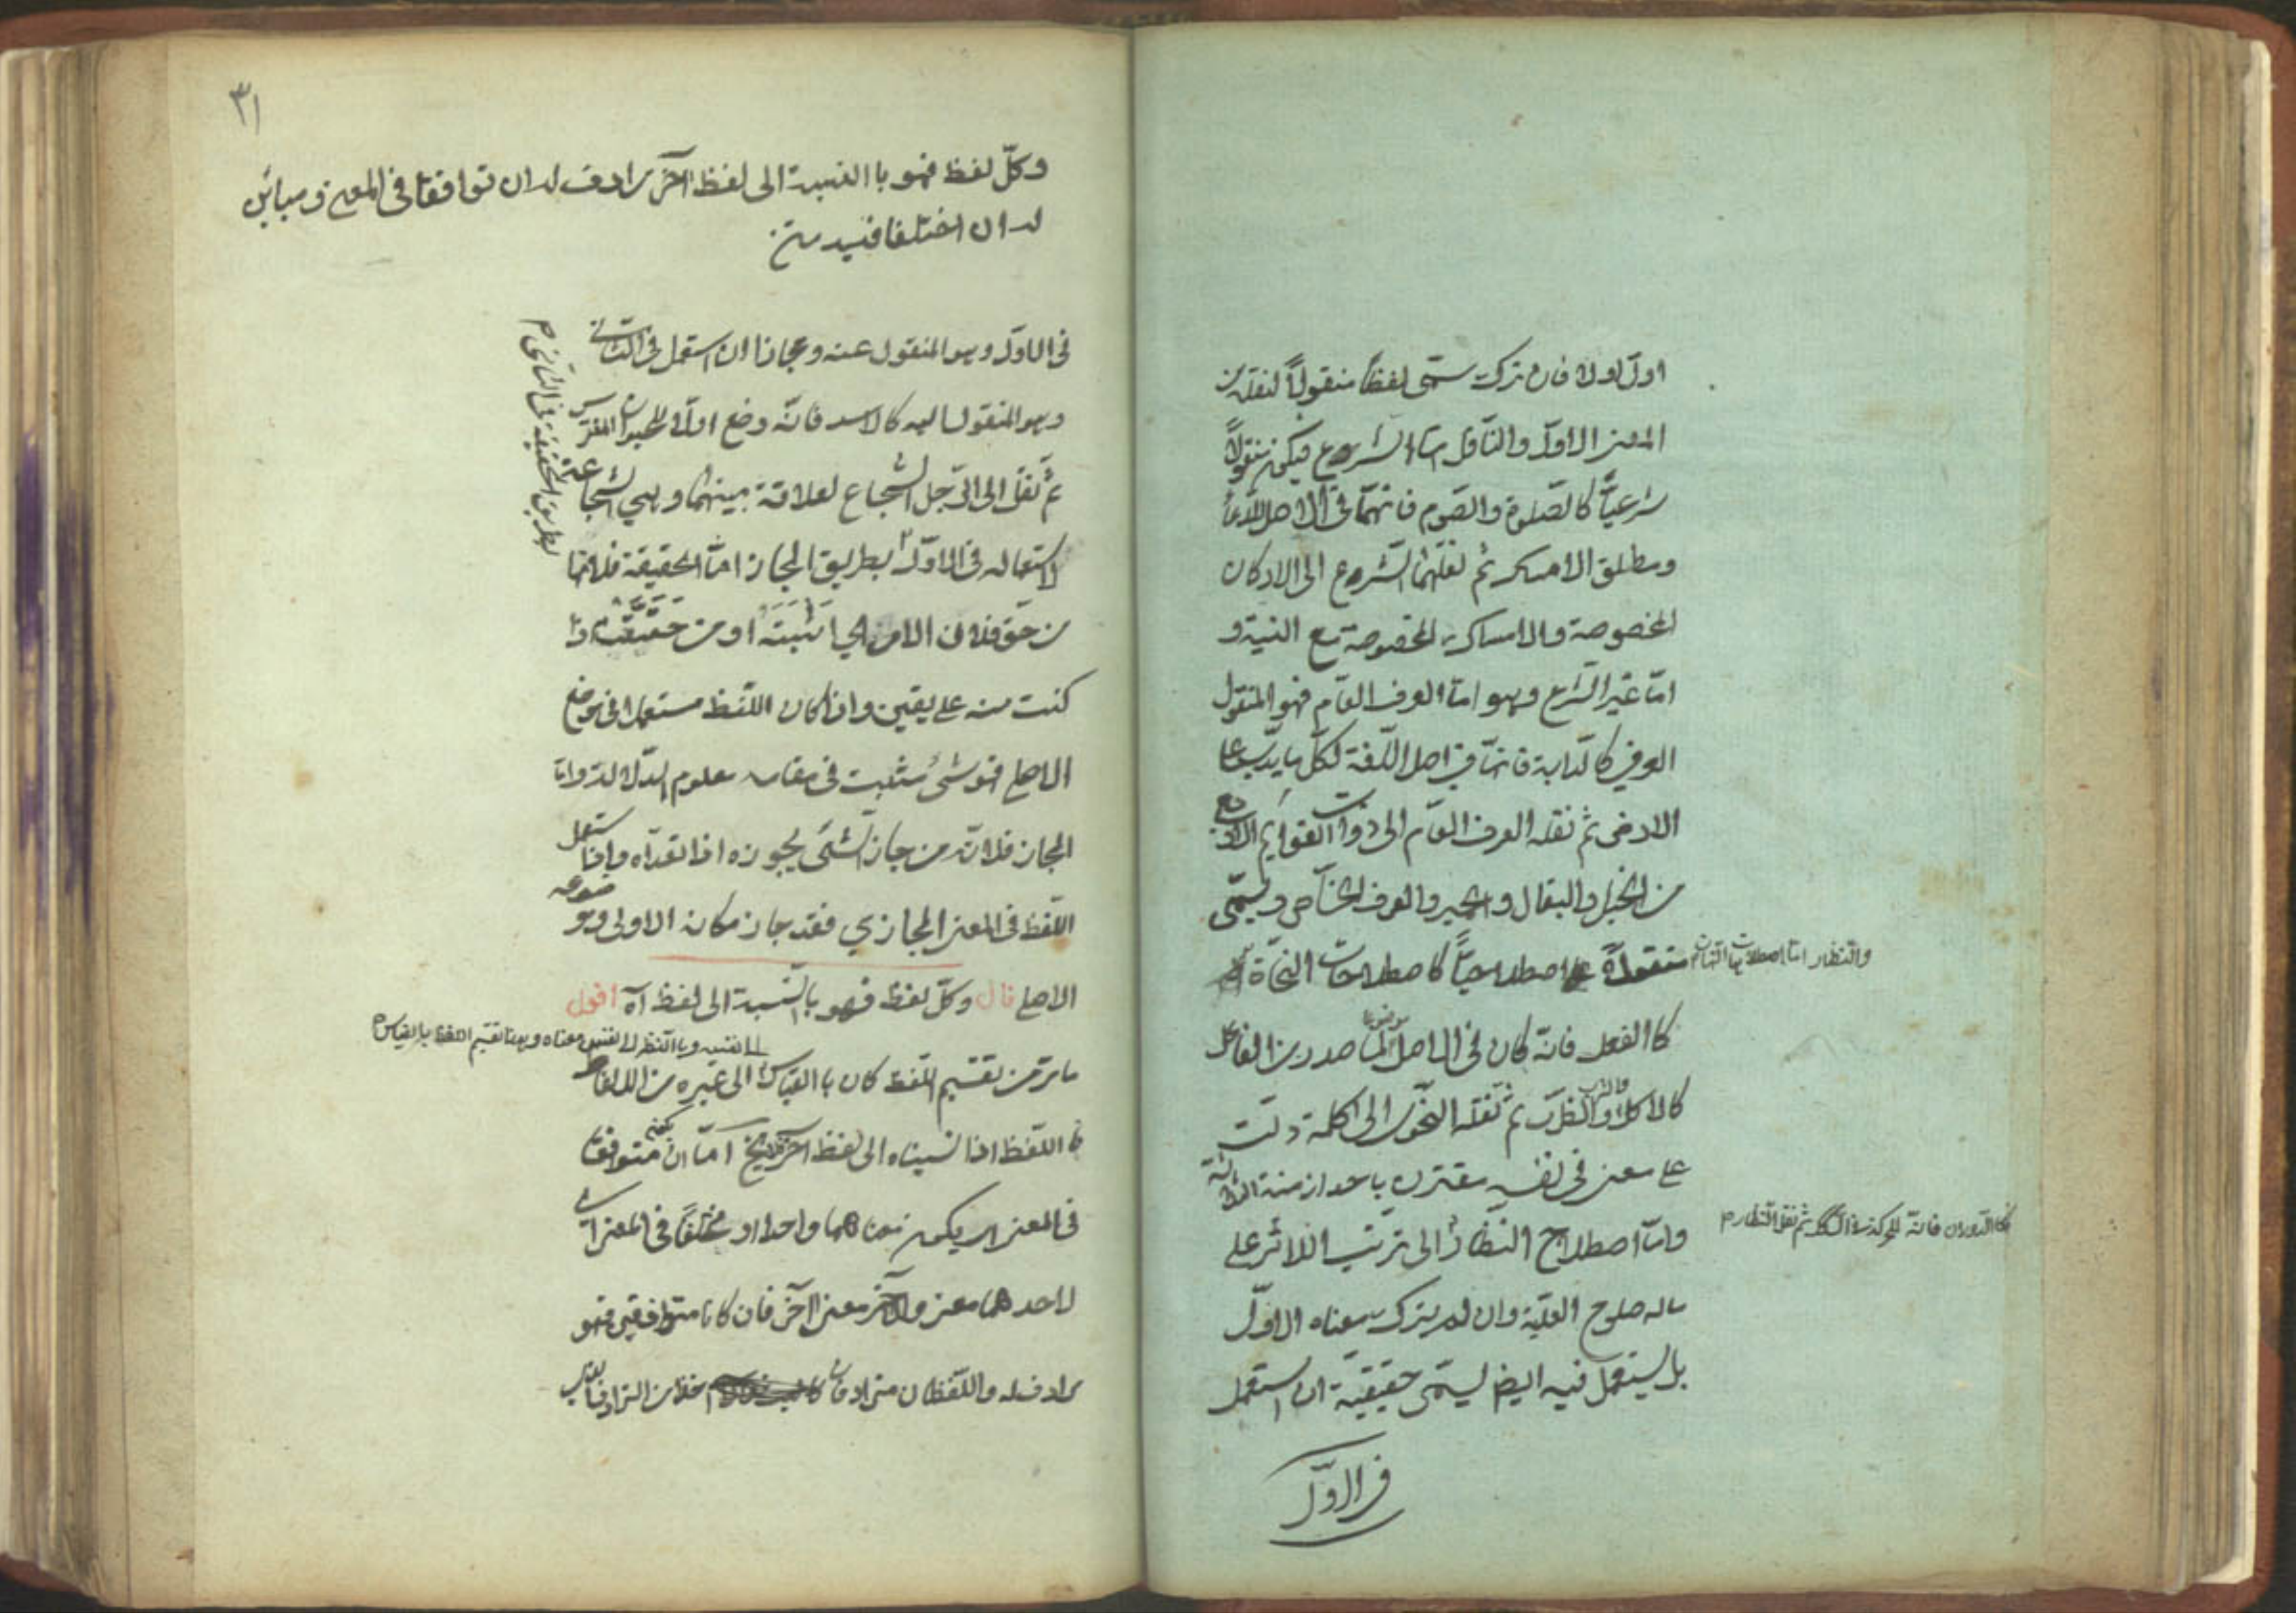 اولا او لا فان ترك سمّى لفظاً منقولاً لنقله من
المعنى الاوّل والناقل امّا الشرع فيكون منقولاً
شرعيّاً كالصّلوة والصّوم فانهما فى الاصل للدّعاء
ومطلق الامساك ثم نقلهما الشرع الى الاركان
المخصوصة والامساك المخصوصة مع النية و
امّا غير الشرع وهو امّا العرف العامّ فهو المنقول
العرفي كالدّابة فانها في اصل اللّغة لكلّ ما يدبّ على
الارض ثم نقله العرف العامّ الى ذوات القوايم الاربع
من الخيل والبغال والحمير والعرف الخاصّ ويسمّى
منقولاً اصطلاحيّاً كاصطلاحات النحاة
والنظار امّا اصطلاحات النحاة
كالفعل فانّه كان في الاصل موضوعا لما صدر من الفاعل
كالاكل والشرب والضرب ثم نقله النحويّون الى كلمة دلّت
على معنى في نفسه مقترن باحد ازمنة الثلاثة
وامّا اصطلاح النظّار الى ترتيب الاثر على
كالدّوران فانّه للحركة في السكك ثم نقل النظار م
ما له صلوح العلية وان لم يترك معناه الاوّل
بل يستعمل فيه ايضا يسمّى حقيقية ان استعمل
في الاوّل
٣١
وكلّ لفظ فهو باالنسبة الى لفظ آخر مرادف له ان توافقا في المعنى ومباين
له ان اختلفا فيه متن
في الاوّل وهو المنقول عنه ومجازا ان استعمل في الثاني
وهو المنقول اليه كالاسد فانّه وضع اولاً للحيوان المفترس
ثم نقل الى الرّجل الشّجاع لعلاقة بينهما وهي الشّجاعة
لاستعماله في الاوّل بطريق المجاز امّا الحقيقة فلانها
بطريق الحقيقة في الثاني م
من حقّ فلان الامر اي اثبته او من حقّقته اذا
كنت منه على يقين واذا كان اللّفظ مستعملا في موضع
الاصلي فهو شئ مثبت في مقامه معلوم الدّلالة وامّا
المجاز فلانّه من جاز الشّئ يجوزه اذا تعدّاه واذا استعمل
اللّفظ في المعنى المجازي فقد جاز مكانه الاولى وموضوعه
الاصلي قال وكلّ لفظ فهو بالنّسبة الى لفظ آه اقول
ما مرّ من تقسيم اللفظ كان باالقياس الى غيره من الالفاظ
الى نفسه وباالنّظر الى نفس معناه وهذا تقسيم اللفظ باالقياس م
فاللّفظ اذا نسبناه الى لفظ آخر امّا ان يكون متوافقا
في المعنى اي يكون معناهما واحدا او مختلفاً في المعنى اي
لاحدهما معنى وللآخر معنى آخر فان كانا متوافقين فهو
مرادف له واللّفظان مترادفان من الترادف